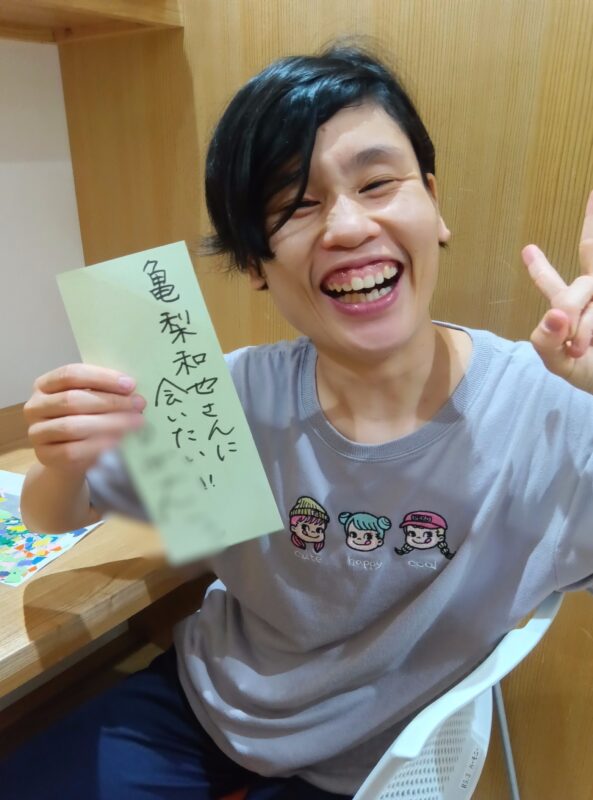 亀梨和也さんに
会いたい!!
cute
happy